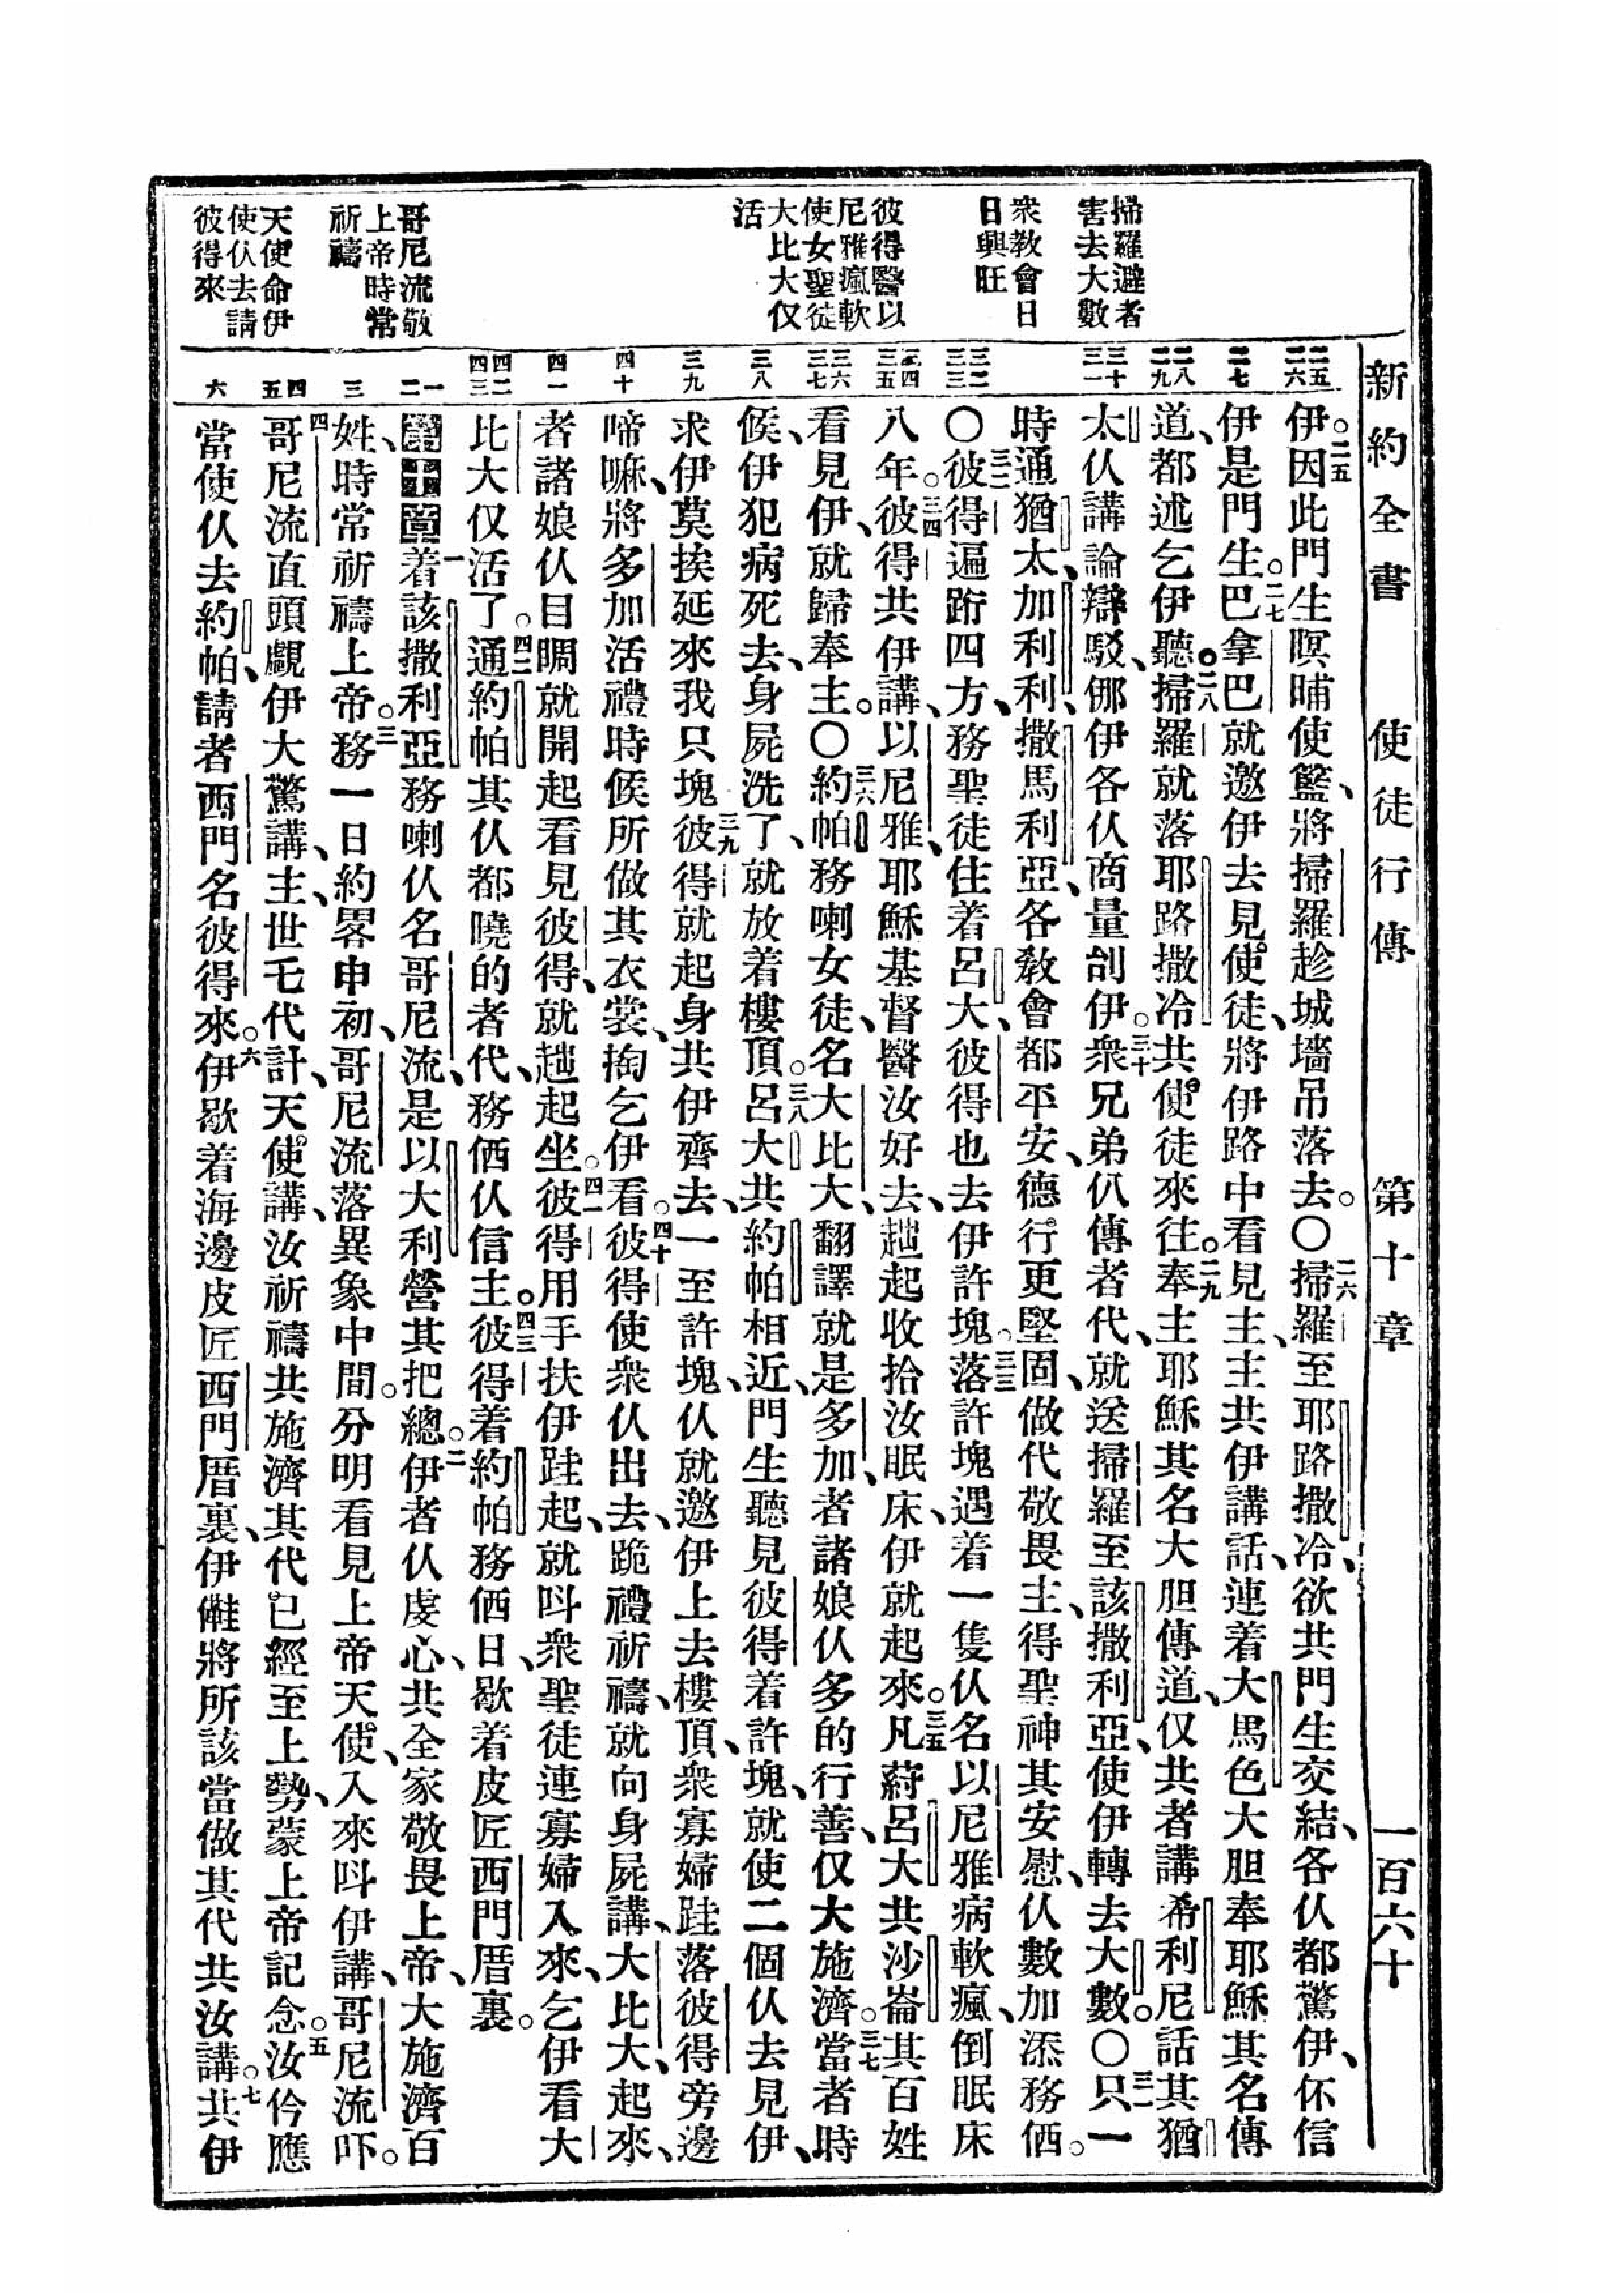 新約全書 使徒行傳 第十章 一百六十
掃羅避者
害去大數
衆教會日
日興旺
彼得醫以
尼雅瘋軟
使女聖徒
大比大仅
活
哥尼流敬
上帝時常
祈禱
天使命伊
使仫去請
彼得來
二五
二六
二七
二八
二九
三十
三一
三二
三三
三四
三五
三六
三七
三八
三九
四十
四一
四二
四三
一
二
三
四
五
六
伊。二五因此門生暝晡使籃、將掃羅趁城墻吊落去。〇二六掃羅至耶路撒冷、欲共門生交結、各仫都驚伊、伓信
伊是門生。二七巴拿巴就邀伊去見使徒、將伊路中看見主、主共伊講話、連着大馬色大胆奉耶穌其名傳
道、都述乞伊聽。二八掃羅就落耶路撒冷共使徒來往。二九奉主耶穌其名大胆傳道、仅共者講希利尼話其猶
太仫講論辯駁、𠆧伊各仫商量刣伊。三十衆兄弟仫傳者代、就送掃羅至該撒利亞、使伊轉去大數。〇三一只一
時通猶太、加利利、撒馬利亞、各教會都平安、德行更堅固、做代敬畏主、得聖神其安慰、仫數加添務価。
〇三二彼得遍跡四方、務聖徒住着呂大、彼得也去伊許塊。三三落許塊遇着一隻仫名以尼雅病軟瘋、倒眠床
八年。三四彼得共伊講、以尼雅、耶穌基督醫汝好去、𧻴起收拾汝眠床、伊就起來。三五凡蒔呂大共沙崙其百姓
看見伊、就歸奉主。〇三六約帕務喇女徒、名大比大、翻譯就是多加、者諸娘仫多的行善、仅大施濟。三七當者時
候、伊犯病死去、身屍洗了、就放着樓頂。三八呂大共約帕相近、門生聽見彼得着許塊、就使二個仫去見伊、
求伊莫挨延來我只塊。三九彼得就起身共伊齊去、一至許塊、仫就邀伊上去樓頂、衆寡婦跬落彼得旁邊
啼嘛、將多加活禮時候所做其衣裳、掏乞伊看。四十彼得使衆仫出去、跪禮祈禱、就向身屍講、大比大、起來、
者諸娘仫目睭就開起看見彼得、就𧻴起坐。四一彼得用手扶伊跬起、就呌衆聖徒連寡婦入來、乞伊看大
比大仅活了。四二通約帕其仫都曉的者代、務価仫信主。四三彼得着約帕務価日、歇着皮匠西門厝裏。
第十章一着該撒利亞務喇仫名哥尼流、是以大利營其把總。二伊者仫虔心、共全家敬畏上帝、大施濟百
姓、時常祈禱上帝。三務一日約畧申初、哥尼流落異象中間。分明看見上帝天使、入來呌伊講、哥尼流吓。
四哥尼流直頭覷伊大驚講、主、世乇代計、天使講、汝祈禱共施濟其代已經至上勢、蒙上帝記念。五汝伶應
當使仫去約帕、請者西門名彼得來。六伊歇着海邊皮匠西門厝裏、伊𠆧將所該當做其代共汝講。七共伊